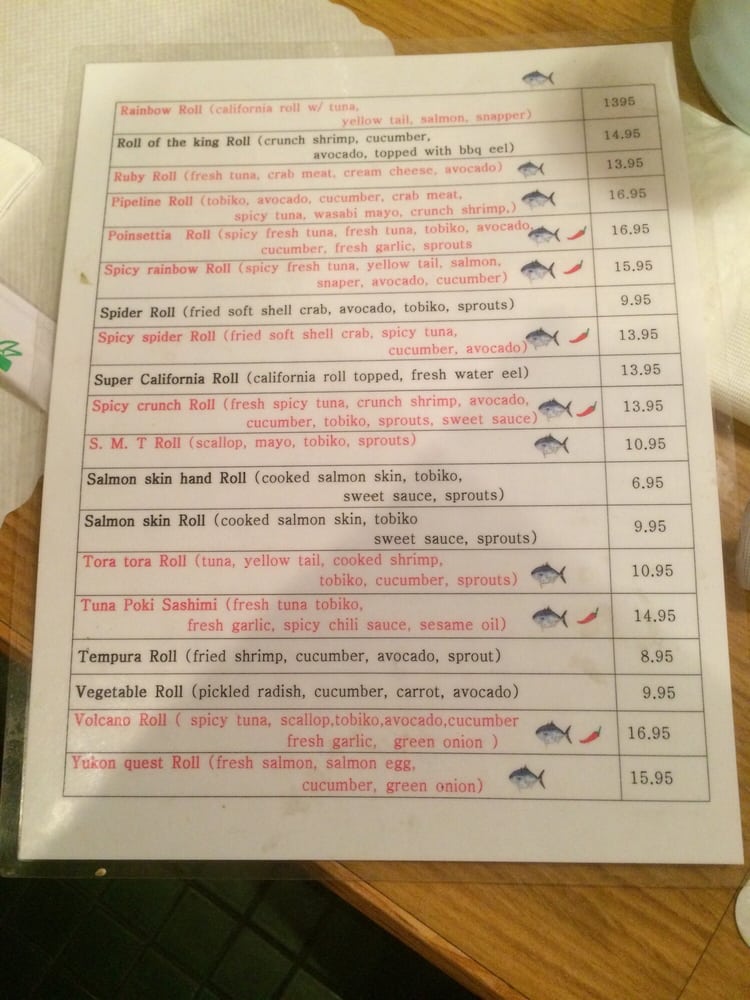 Rainbow Roll (california roll w/ tuna, 1395
yellow tail, salmon, snapper)
Roll of the king Roll (crunch shrimp, cucumber, 14.95
avocado, topped with bbq eel)
Ruby Roll (fresh tuna, crab meat, cream cheese, avocado) 13.95
Pipeline Roll (tobiko, avocado, cucumber, crab meat, 16.95
spicy tuna, wasabi mayo, crunch shrimp,)
Poinsettia Roll (spicy fresh tuna, fresh tuna, tobiko, avocado, 16.95
cucumber, fresh garlic, sprouts
Spicy rainbow Roll (spicy fresh tuna, yellow tail, salmon, 15.95
snaper, avocado, cucumber)
Spider Roll (fried soft shell crab, avocado, tobiko, sprouts) 9.95
Spicy spider Roll (fried soft shell crab, spicy tuna, 13.95
cucumber, avocado)
Super California Roll (california roll topped, fresh water eel) 13.95
Spicy crunch Roll (fresh spicy tuna, crunch shrimp, avocado, 13.95
cucumber, tobiko, sprouts, sweet sauce)
S. M. T Roll (scallop, mayo, tobiko, sprouts) 10.95
Salmon skin hand Roll (cooked salmon skin, tobiko, 6.95
sweet sauce, sprouts)
Salmon skin Roll (cooked salmon skin, tobiko 9.95
sweet sauce, sprouts)
Tora tora Roll (tuna, yellow tail, cooked shrimp, 10.95
tobiko, cucumber, sprouts)
Tuna Poki Sashimi (fresh tuna tobiko, 14.95
fresh garlic, spicy chili sauce, sesame oil)
Tempura Roll (fried shrimp, cucumber, avocado, sprout) 8.95
Vegetable Roll (pickled radish, cucumber, carrot, avocado) 9.95
Volcano Roll ( spicy tuna, scallop,tobiko,avocado,cucumber 16.95
fresh garlic, green onion )
Yukon quest Roll (fresh salmon, salmon egg, 15.95
cucumber, green onion)